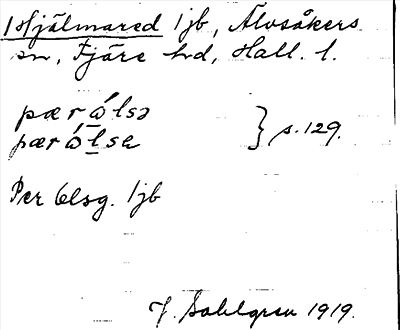 1 Hjälmared 1jb, Älvsåkers
sn, Fjäre hd, Hall. l.
pærólsə
pærólsa } s. 129.
Per Olsg. 1jb
J. Sahlgren 1919.